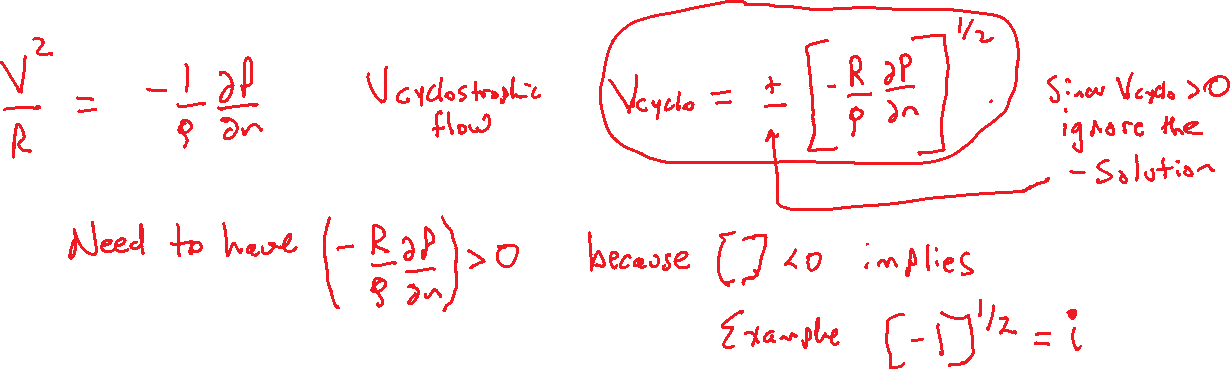 V²/R = - 1/ρ ∂P/∂n
Vcyclostrophic flow
Vcyclo = ± [- R/ρ ∂P/∂n]^1/2
Since Vcyclo > 0
ignore the
- Solution
Need to have (- R/ρ ∂P/∂n) > 0 because [ ] < 0 implies
Example [-1]^1/2 = i